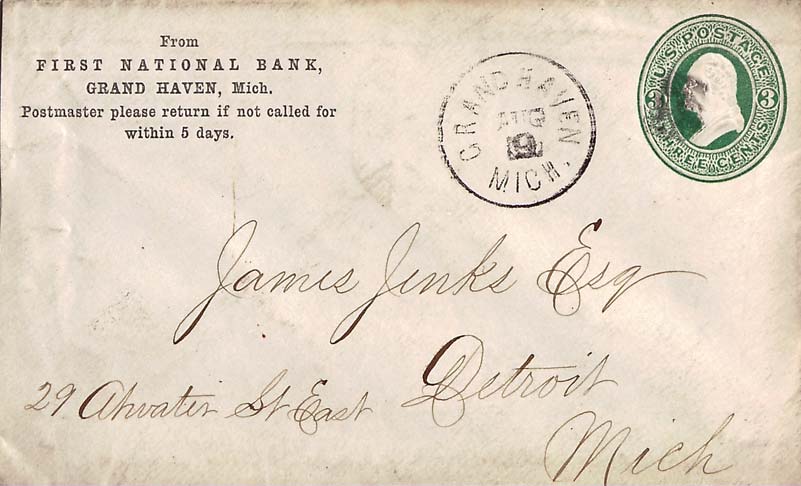 From
FIRST NATIONAL BANK,
GRAND HAVEN, Mich.
Postmaster please return if not called for
within 5 days.
GRAND HAVEN
AUG
MICH.
U.S. POSTAGE
3 3
THREE CENTS
James Jenks Esq
29 Atwater St East
Detroit
Mich